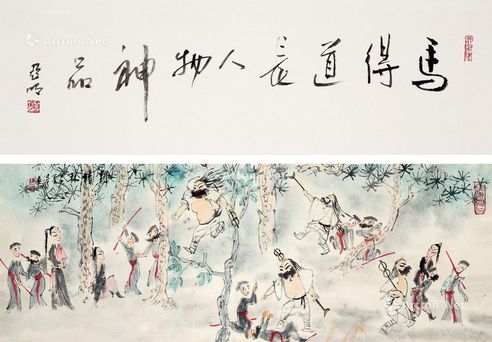 馬得道長人物神品
亞明
Artron.Net